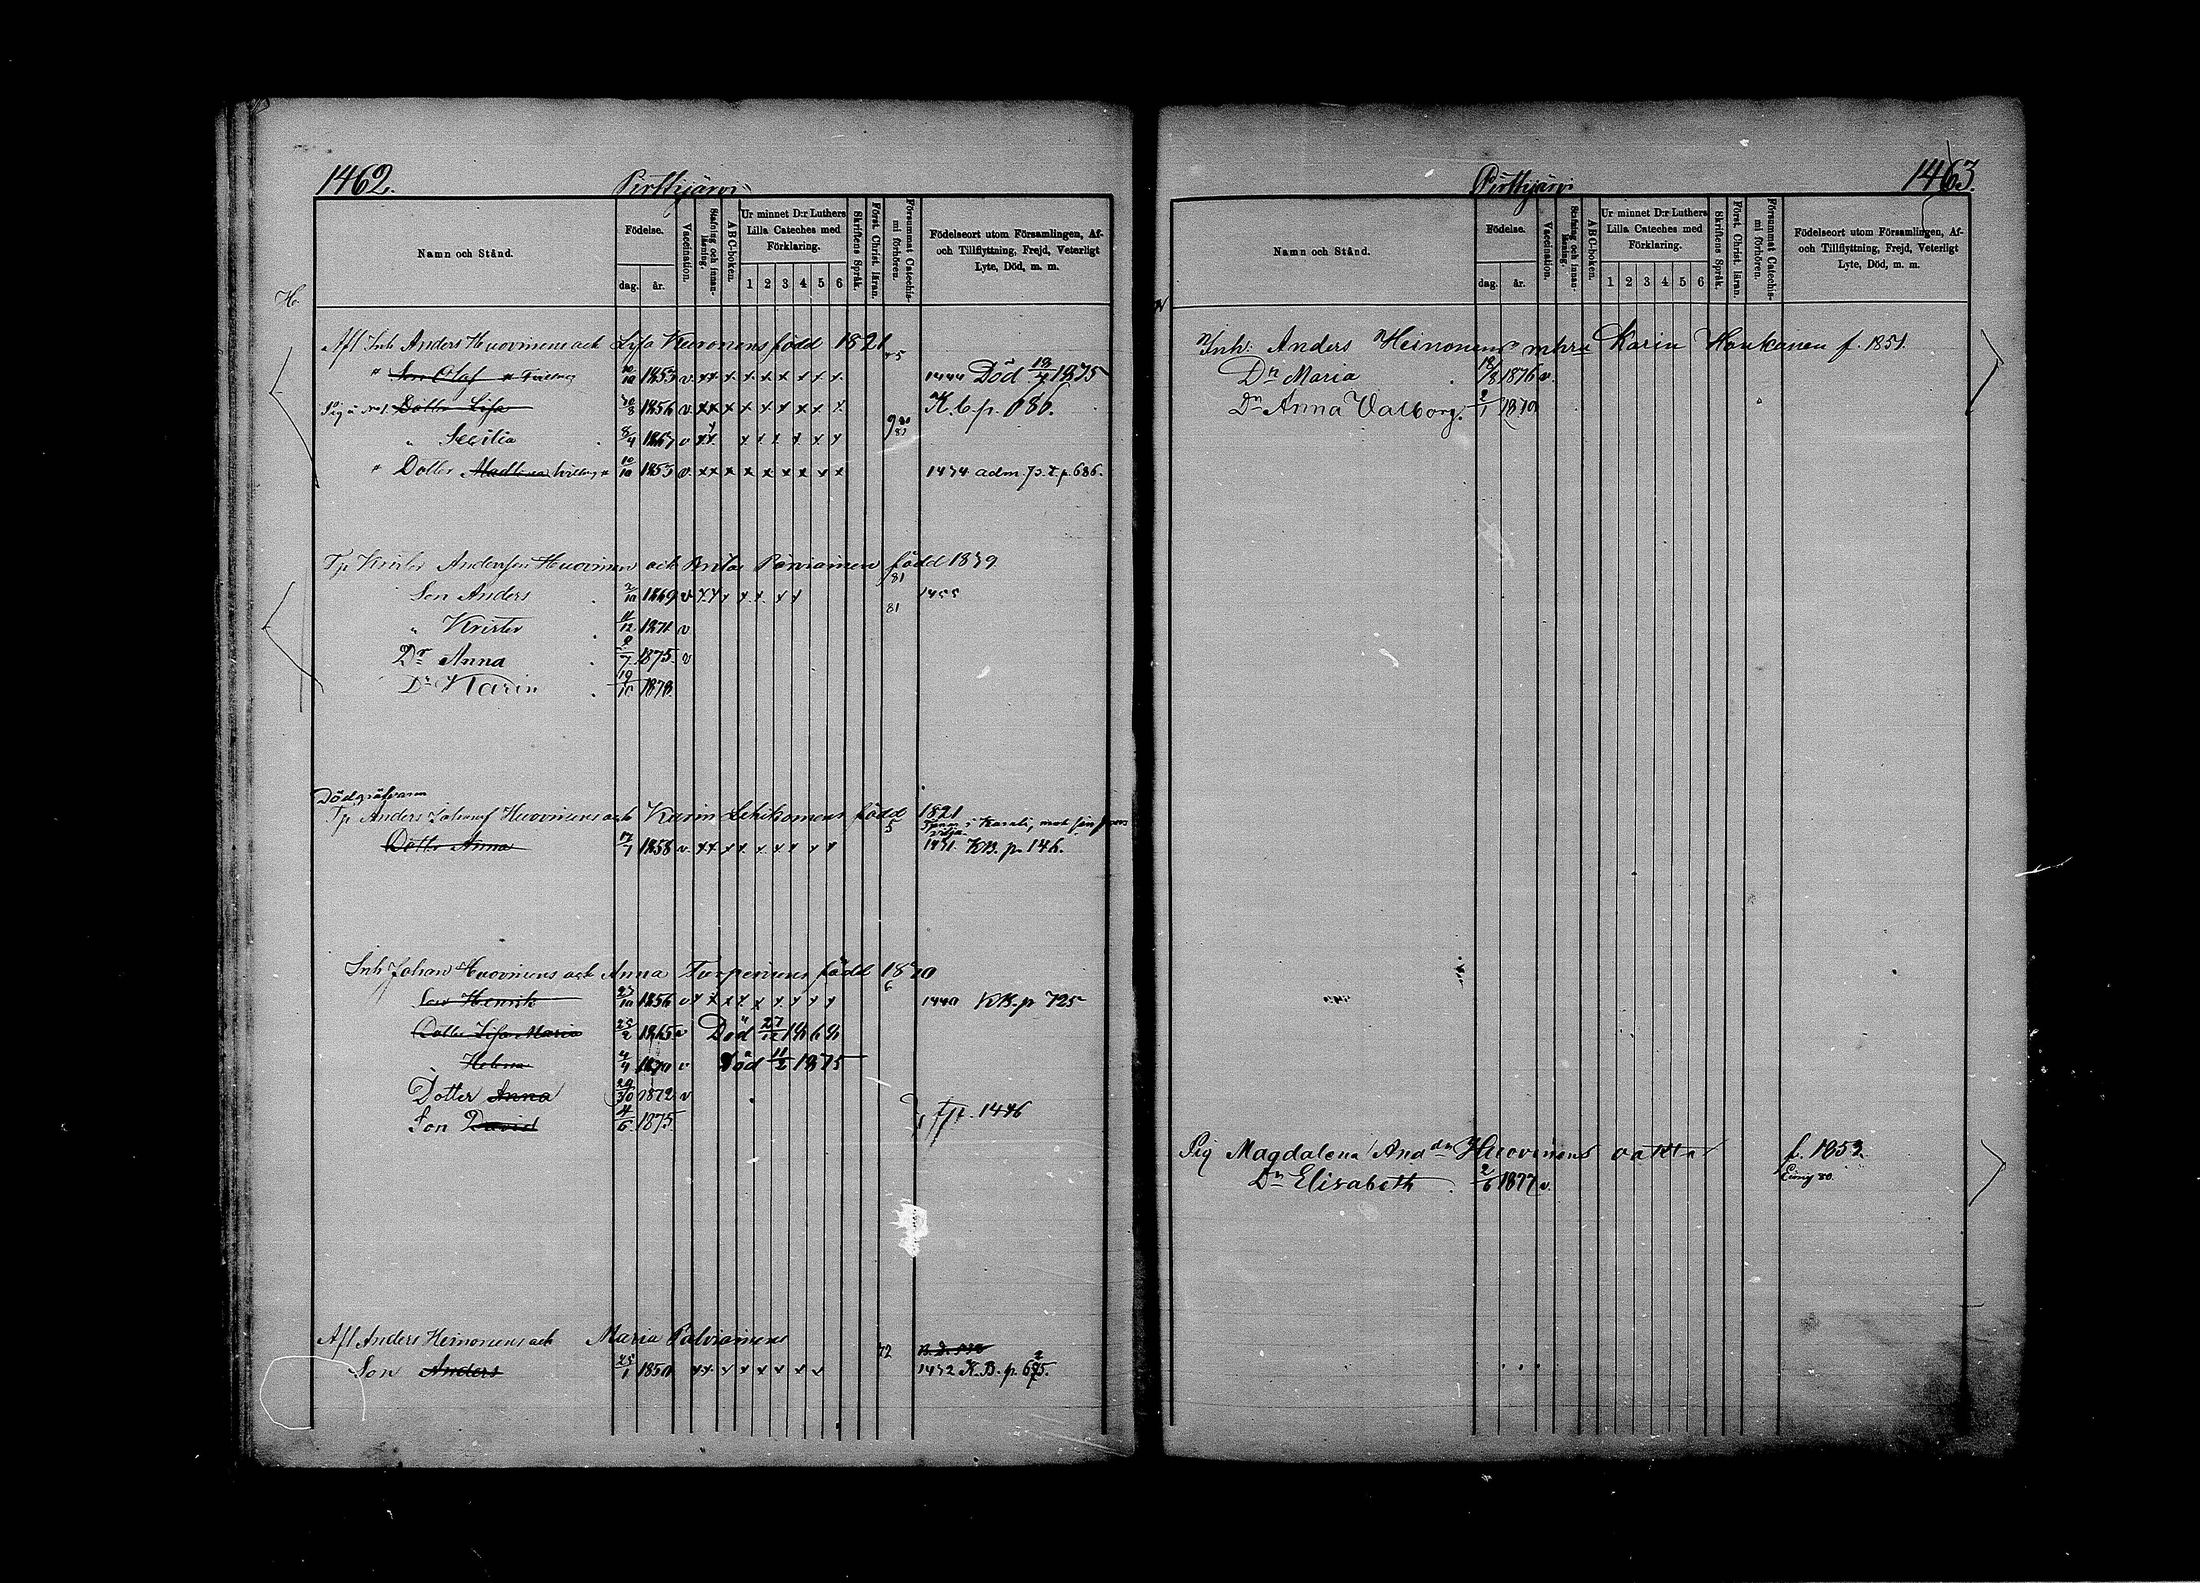 1462.
Pirttijärvi
Namn och Stånd.
Födelse.
dag.
år.
Vaccination.
Stafning och innanläsning.
ABC-boken.
Ur minnet D:r Luthers Lilla Cateches med Förklaring.
1 2 3 4 5 6
Skriftens Språk.
Först. Christ. läran.
Försummat Catechismi förhören.
Födelseort utom Församlingen, Af- och Tillflyttning, Frejd, Veterligt Lyte, Död, m. m.
Afl Inh Anders Huovinens och Lisa Kuronens född 1821
" Son Olaf 10/10 1853 v. x x x x x x x x x Död 1875
Dotter Lisa 1856 v x x x x x x x x x K. b. p. 686.
" Secilia 8/4 1867 v x x x x x x x x
" Dotter 10/10 1853 v. x x x x x x x x x 1474 adm. p. 686.
Tp Krister Anderssen Huovinen och Brita född 1839
81
Son Anders 2/10 1869 v x x x x x x x 1455
81
" Krister 1871 v
Dr Anna 1875 v
Dr Karin 19/10 1878
Dödgräfvaren
Tp Anders Huovinens och Karin Lehikoinens född 1821
Dotter Anna 17/7 1858 v. x x x x x x x x x 1471. KB. p. 146.
Inh Johan Huovinens och Anna Turpeinens född
Son Henrik 27/10 1856 v x x x x x x x x x 1440 KB. p 725
Dotter Lisa Maria 25/2 1865 v Död 27/12 1868
Helena 4/4 1870 v Död 11/2 1875
Dotter Anna 1872 v
Son David 4/6 1875 1446
Afl Anders Heinonens och Maria Palviainens
72
Son Anders 25/1 1850 x x x x x x x x 1472 K. B. p.
1463.
Pirttijärvi
Namn och Stånd.
Födelse.
dag.
år.
Vaccination.
Stafning och innanläsning.
ABC-boken.
Ur minnet D:r Luthers Lilla Cateches med Förklaring.
1 2 3 4 5 6
Skriftens Språk.
Först. Christ. läran.
Försummat Catechismi förhören.
Födelseort utom Församlingen, Af- och Tillflyttning, Frejd, Veterligt Lyte, Död, m. m.
Inh: Anders Heinonens o mhru Karin Haukanen f. 1851.
Dn Maria 18/8 1876 v.
Dn Anna Valborg. 2/1 1879
Pig Magdalena And dr Huovinens oäkta f. 1853.
Dn Elisabeth 2/6 1877 v.